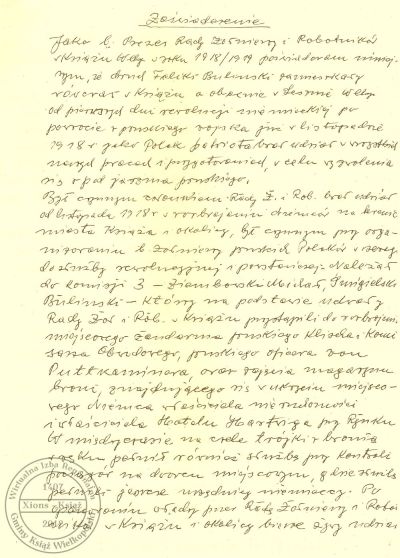 Zaświadczenie
Jako b. Prezes Rady Żołnierzy i Robotników
w Książu Wlkp. w roku 1918/1919 poświadczam niniej-
szym, że druh Feliks Buliński zamieszkały
wówczas w Książu a obecnie w Lesznie Wlkp.
od pierwszych dni rewolucji niemieckiej po
powrocie z pruskiego wojska już w listopadzie
1918 r. jako Polak patriota brał udział w wszystkich
naszych pracach i przygotowaniach, w celu wyzwolenia
się z pod jarzma pruskiego.
Był czynnym członkiem Rady Ż. i Rob. brał udział
od listopada 1918 r. w rozbrajaniu Niemców na terenie
miasta Książa i okolicy, był czynnym przy orga-
nizowaniu b. żołnierzy pruskich Polaków w szereg
do służby rewolucyjnej i powstańczej. Należał
do komisji 3 – Ziamborski Michał, Śmigielski
Buliński – którzy na podstawie uchwały
Rady Żoł. i Rob. w Książu przystąpili do rozbrojenia
miejscowego żandarma pruskiego Klischa i Komi
sarza Obwodowego, pruskiego oficera von
Puttkamara oraz zajęcia magazynu
broni, znajdującego się w ukryciu miejsco-
wego Niemca właściciela nieruchomości
i właściciela Hotelu Hartwiga przy Rynku
W międzyczasie na czele trójki z bronią
w ręku pełnił również służbę przy kontroli
pociągów na dworcu miejscowym, gdzie
pełnili jeszcze urzędnicy niemieccy. Po
przez Radę Żołnierzy i Robo
w Książu i okolicy bierze żywy udział
Wirtualna Izba Regionalna
Xions Książ
Gminy Książ Wielkopolski